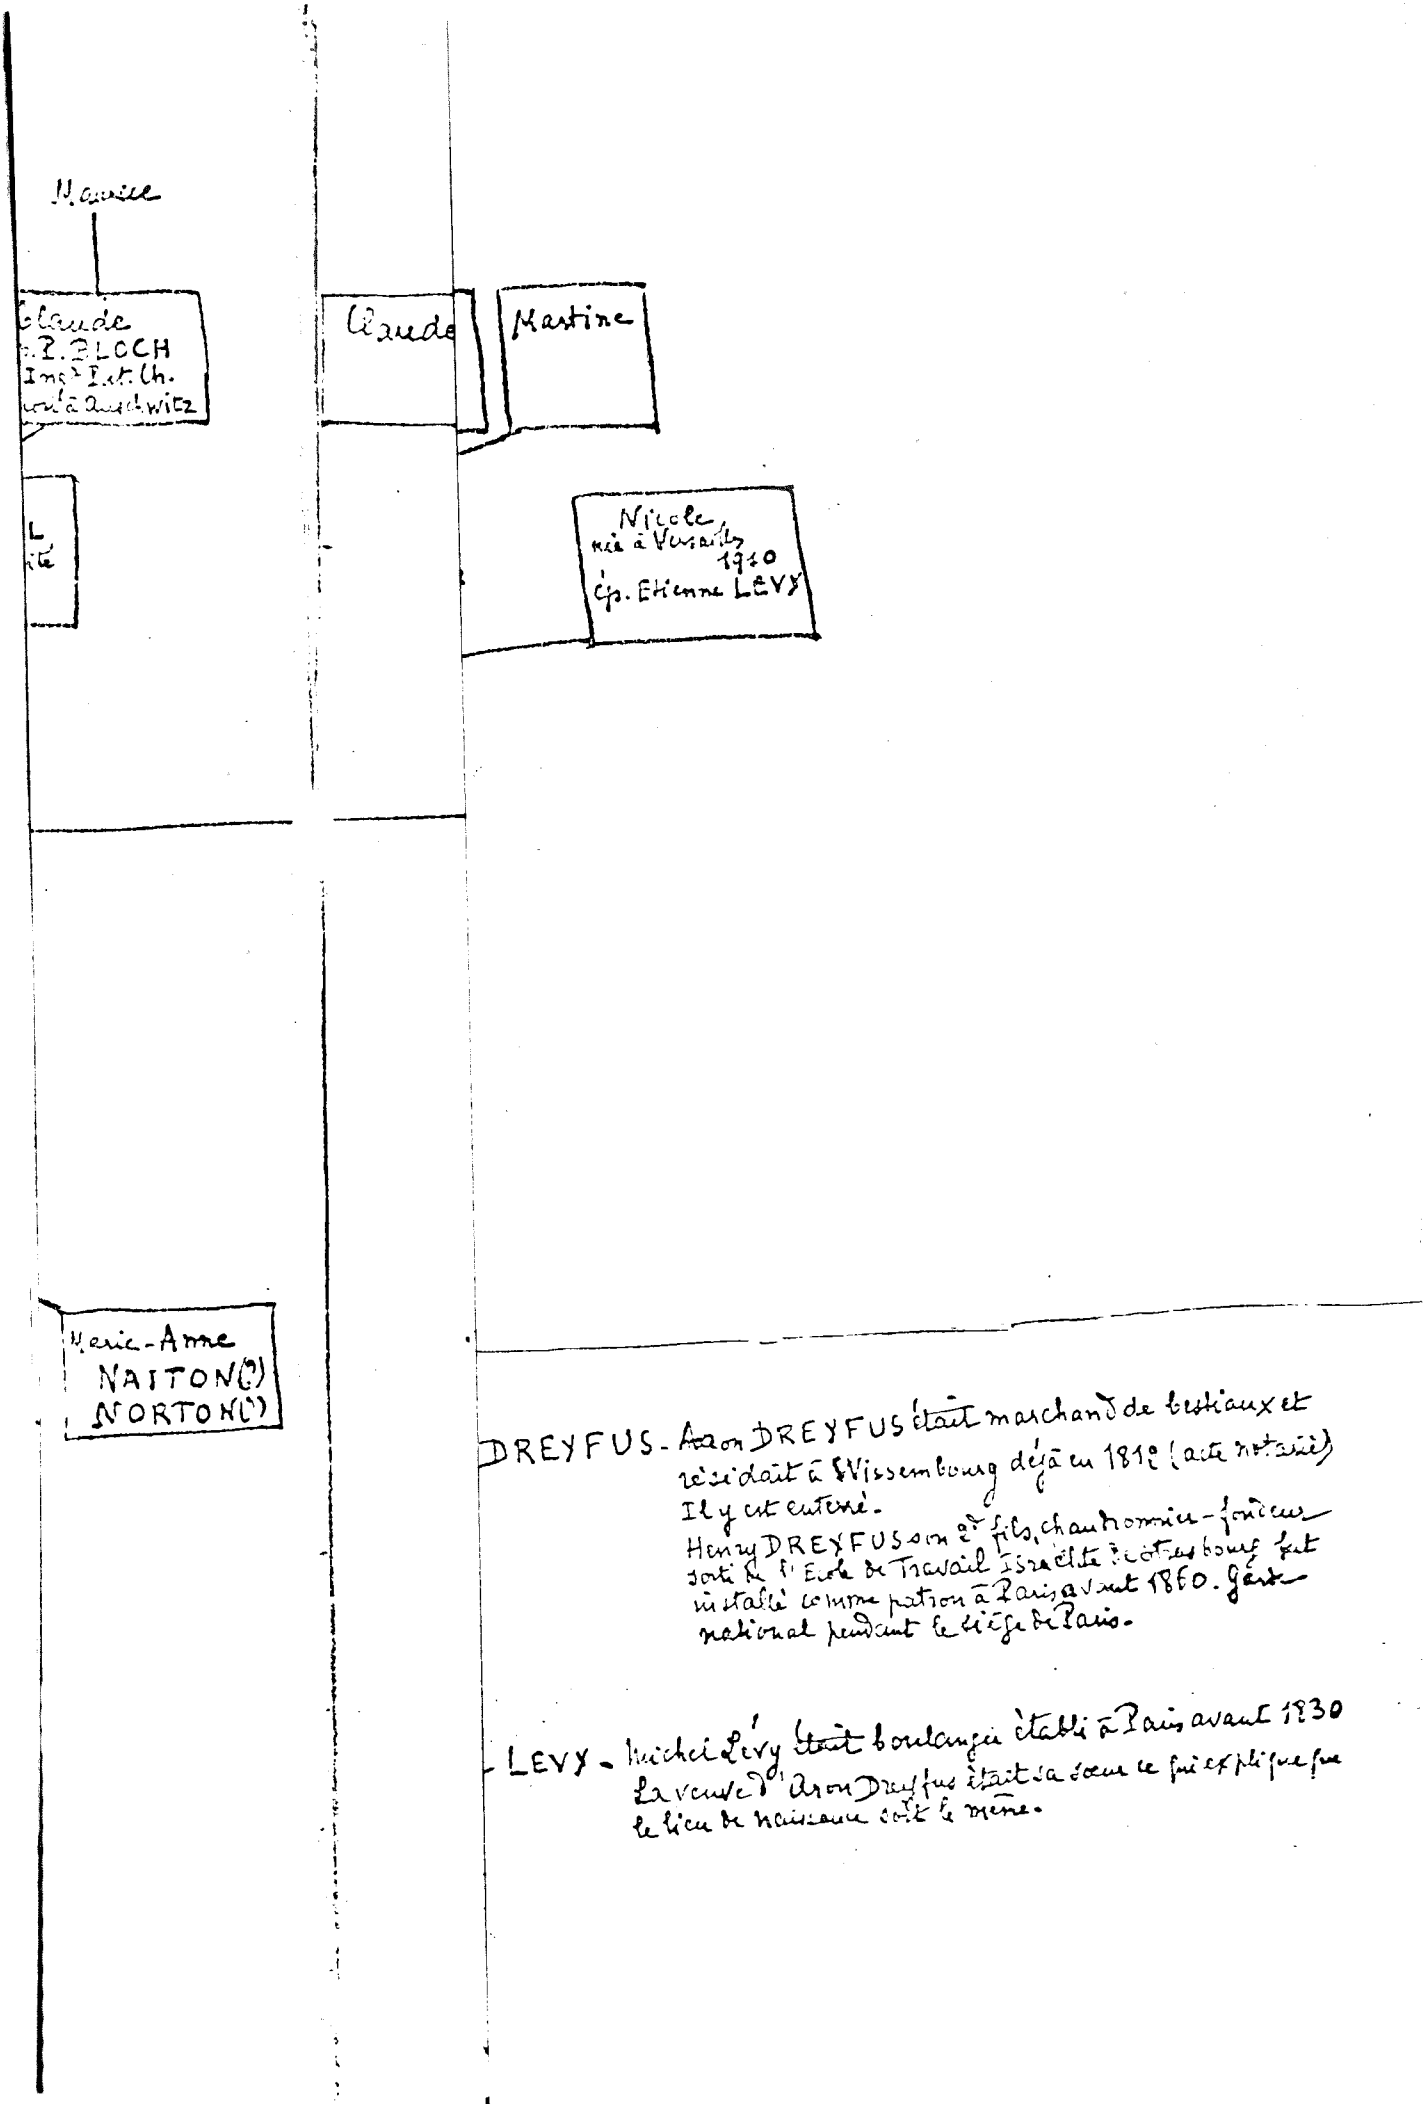 Maurice
Claude
P. BLOCH
Ing<sup>r</sup> Ch.
à Auschwitz
L
ité
Claude
Martine
Nicole
née à Versailles
1910
ép. Etienne LEVY
Marie-Anne
NAITON(?)
NORTON(?)
DREYFUS - Aaron DREYFUS était marchand de bestiaux et
résidait à Wissembourg déjà en 1812 (acte notarié)
Il y est enterré.
Henry DREYFUS son 2<sup>d</sup> fils, chaudronnier-fondeur
sorti de l'Ecole de Travail Israélite de Strasbourg fut
installé comme patron à Paris avant 1860. Garde
national pendant le siège de Paris.
- LEVY - Michel Lévy était boulanger établi à Paris avant 1830
La veuve d'Aron Dreyfus était sa sœur ce qui explique que
le lieu de naissance soit le même.